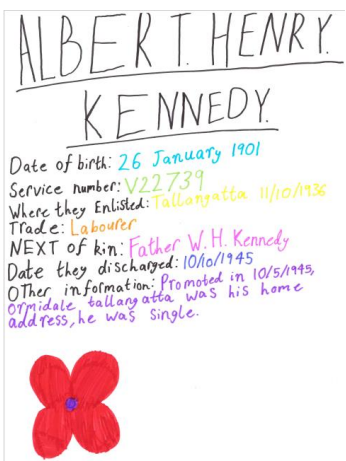 ALBERT. HENRY.
KENNEDY.
Date of birth: 26 January 1901
Service number: V22739
Where they Enlisted: Tallangatta 11/10/1936
Trade: Labourer
NEXT of kin: Father W.H. Kennedy
Date they discharged: 10/10/1945
Other information: Promoted in 10/5/1945,
Ormidale tallangatta was his home
address, he was single.